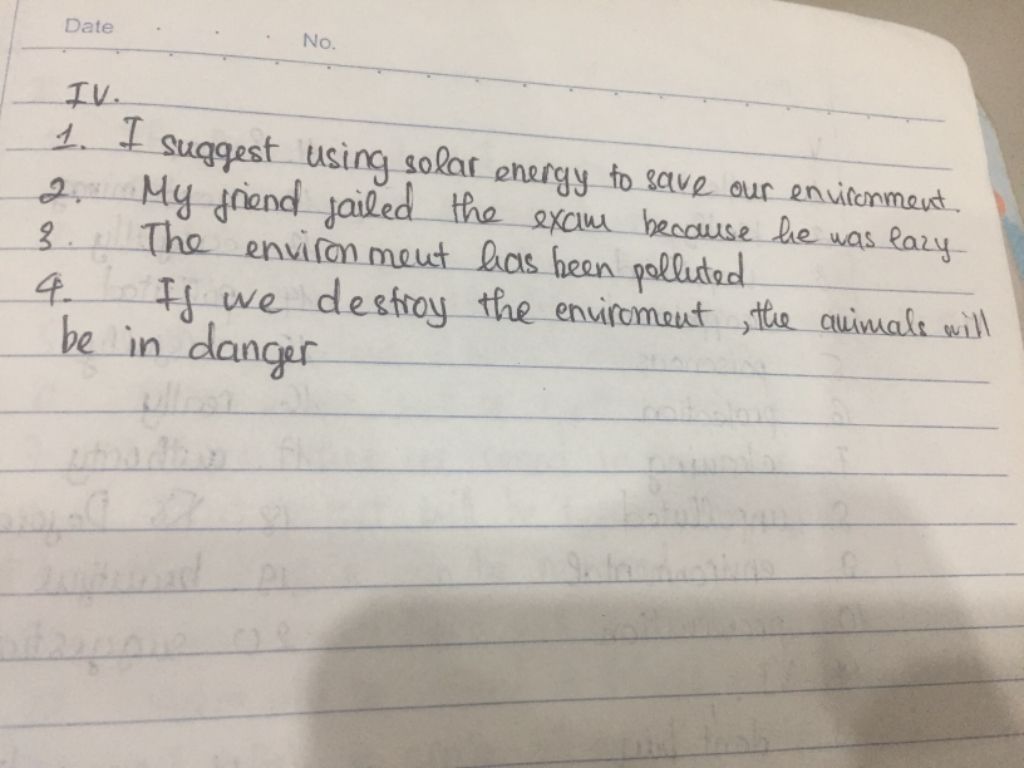 Date
No.
IV.
1. I suggest using solar energy to save our environment.
2. My friend failed the exam because he was lazy
3. The environment has been polluted
4. If we destroy the enviroment, the animals will
be in danger